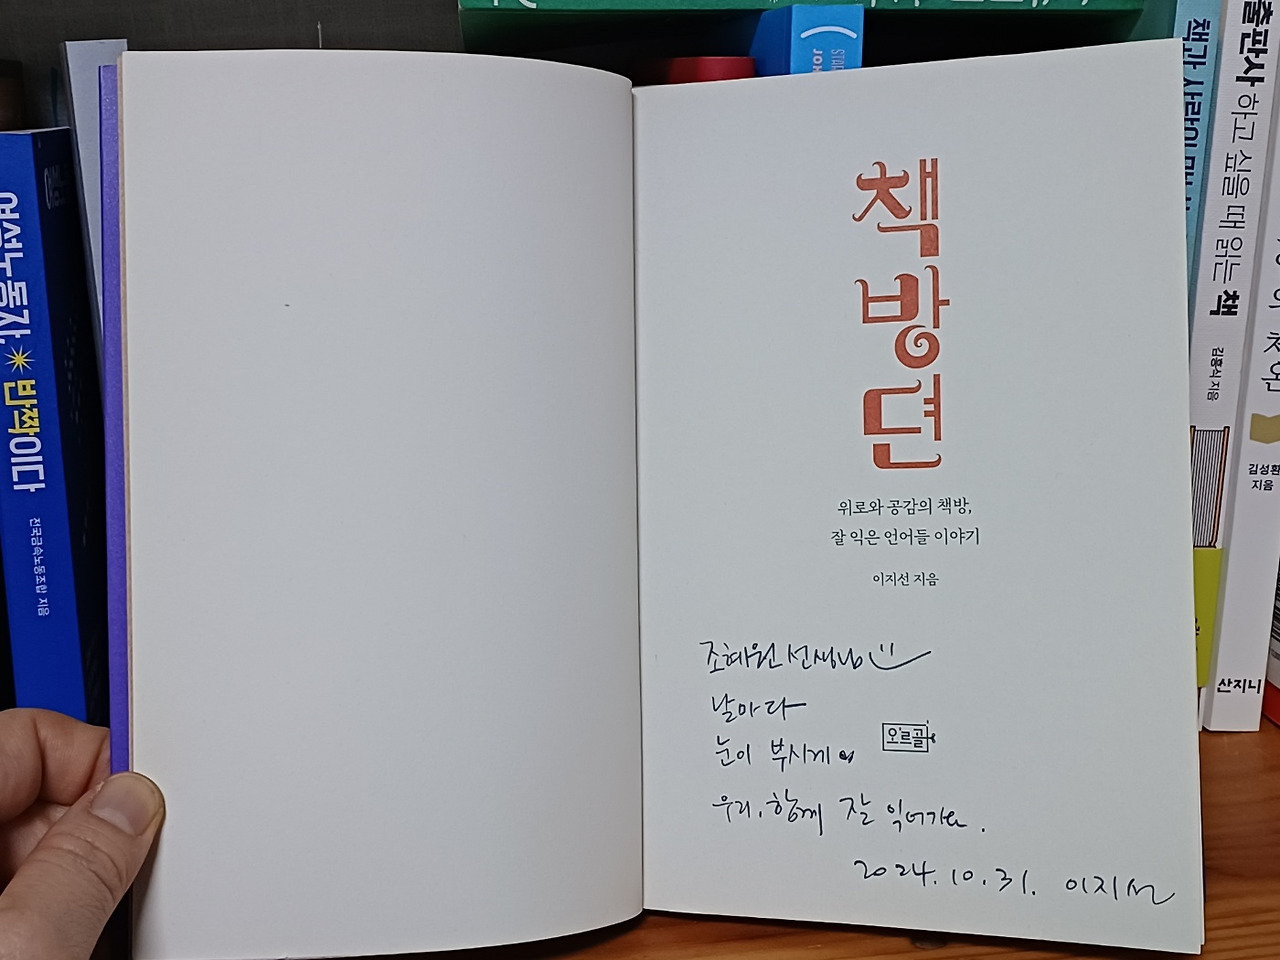 책
방
뎐
위로와 공감의 책방,
잘 익은 언어들 이야기
이지선 지음
조혜원 선생님
날마다
눈이 부시게
오르골
우리, 함께 잘 익어가요.
2024.10.31. 이지선
여성노동자, 반짝이다
전국금속노동조합 지음
책과 사람이
출판사 하고 싶을 때 읽는 책
김흥식 지음
김성환
지음
산지니